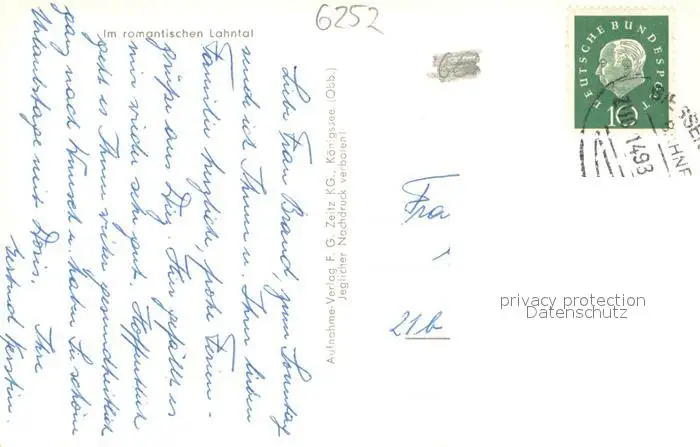 6252
Im romantischen Lahntal
Liebe Frau Brand, zum Sonntag
sende ich Ihnen u. Ihrer lieben
Familie herzliche, frohe Ferien-
grüße aus Diez. Hier gefällt es
mir wieder sehr gut. Hoffentlich
geht es Ihnen wieder gesundheitlich
ganz nach Wunsch u. haben Sie schöne
Urlaubstage mit Doris. Ihre
Gertrud Kerstin.
Aufnahme-Verlag F. G. Zeitz KG., Königssee (Obb.)
Jeglicher Nachdruck verboten!
DEUTSCHE BUNDESPOST
10
GIESSEN
BAHNP
ZUG 1493
Fra
21b
privacy protection
Datenschutz